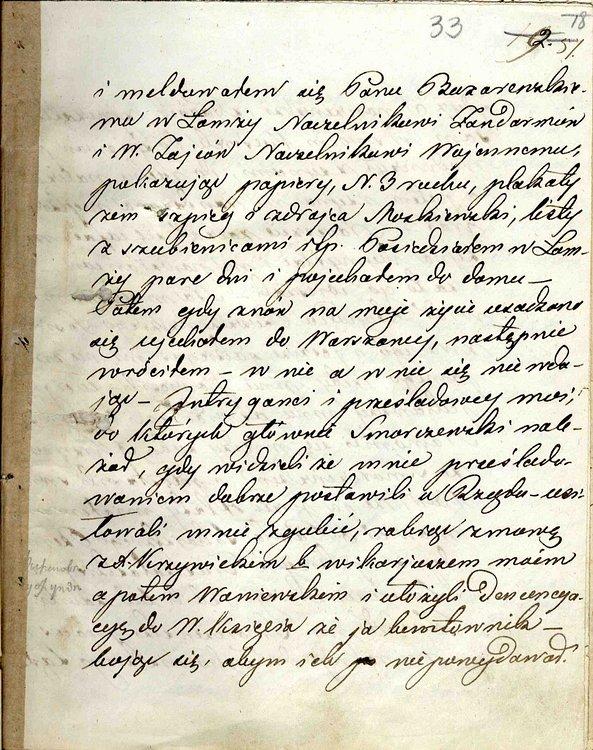 33
18
2.
51
i meldowałem się Panu Bazarewskie-
mu w Łomży Naczelnikowi Żandarmów
i W. Zajców Naczelnikowi Wojennemu,
pokazując papiery, N. 3 ruchu, plakaty
żem szpieg i zdrajca Moskiewski, listy
z szubienicami itp. Posiedziałem w Łom-
ży parę dni i pojechałem do domu —
Potem gdy znów na moje życie usadzono
się ujechałem do Warszawy, następnie
wróciłem — w nic a w nic się nie wda-
jąc — Intryganci i prześladowcy moi,
do których głównie Smorczewski nale-
żał, gdy widzieli że mnie prześlado-
waniem dobrze postawili u Rządu — usi-
łowali mnie zgubić, robiąc zmowę
z X. Krzywickim b wikarjuszem moim
a potem Waniewskim i ułożyli
do W. Księcia że ja buntownik —
bojąc się, abym ich nie powydawał.